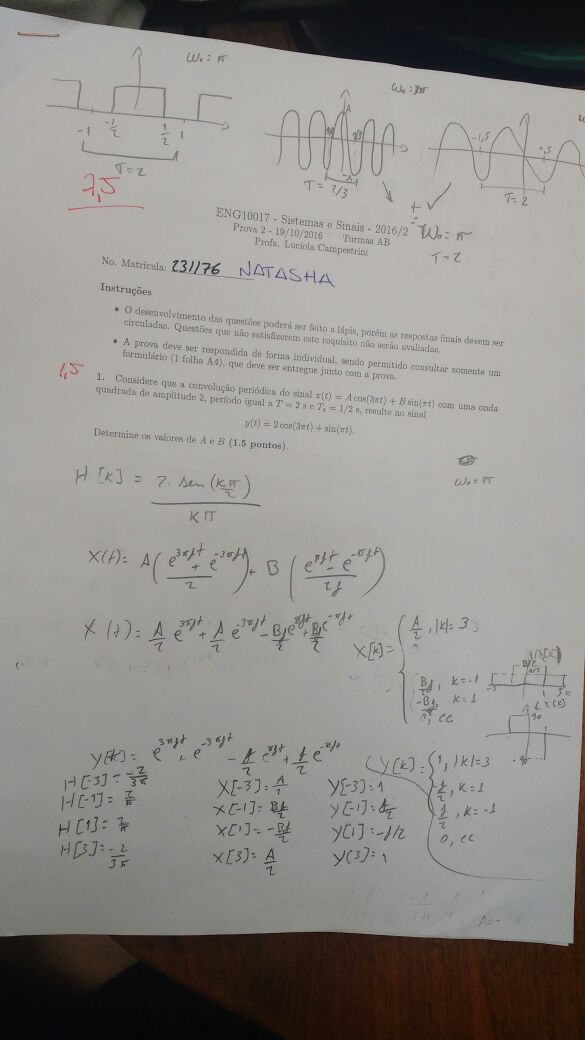 ω₀ = π
-1 -1/2 1/2 1
T=2
A
-A
T = 2/3
-1,5 ,5
T=2
7,5
ω₀ = π
T=2
ENG10017 - Sistemas e Sinais - 2016/2
Prova 2 - 19/10/2016 Turmas AB
Profa. Lucíola Campestrini
No. Matrícula: 231176 NATASHA
Instruções
• O desenvolvimento das questões poderá ser feito a lápis, porém as respostas finais devem ser
circuladas. Questões que não satisfizerem este requisito não serão avaliadas.
• A prova deve ser respondida de forma individual, sendo permitido consultar somente um
formulário (1 folha A4), que deve ser entregue junto com a prova.
1,5
1. Considere que a convolução periódica do sinal x(t) = A cos(3πt) + B sin(πt) com uma onda
quadrada de amplitude 2, período igual a T = 2 s e Tₛ = 1/2 s, resulte no sinal
y(t) = 2 cos(3πt) + sin(πt).
Determine os valores de A e B (1.5 pontos).
ω₀ = π
H[k] = 2. sen(kπ/2) / kπ
X(t) = A(e^3πjt + e^-3πjt / 2) + B(e^πjt - e^-πjt / 2j)
X(t) = A/2 e^3πjt + A/2 e^-3πjt - Bj/2 e^πjt + Bj/2 e^-πjt
X[k] = { A/2, |k| = 3
Bj/2, k=-1
-Bj/2, k=1
0, cc
Y(t) = e^3πjt + e^-3πjt - j/2 e^πjt + j/2 e^-πjt
Y[k] = { 1, |k|=3
-j/2, k=1
j/2, k=-1
0, cc
H[-3] = -2/3π X[-3] = A/2 Y[-3] = 1
H[-1] = 2/π X[-1] = Bj/2 Y[-1] = j/2
H[1] = 2/π X[1] = -Bj/2 Y[1] = -j/2
H[3] = -2/3π X[3] = A/2 Y[3] = 1